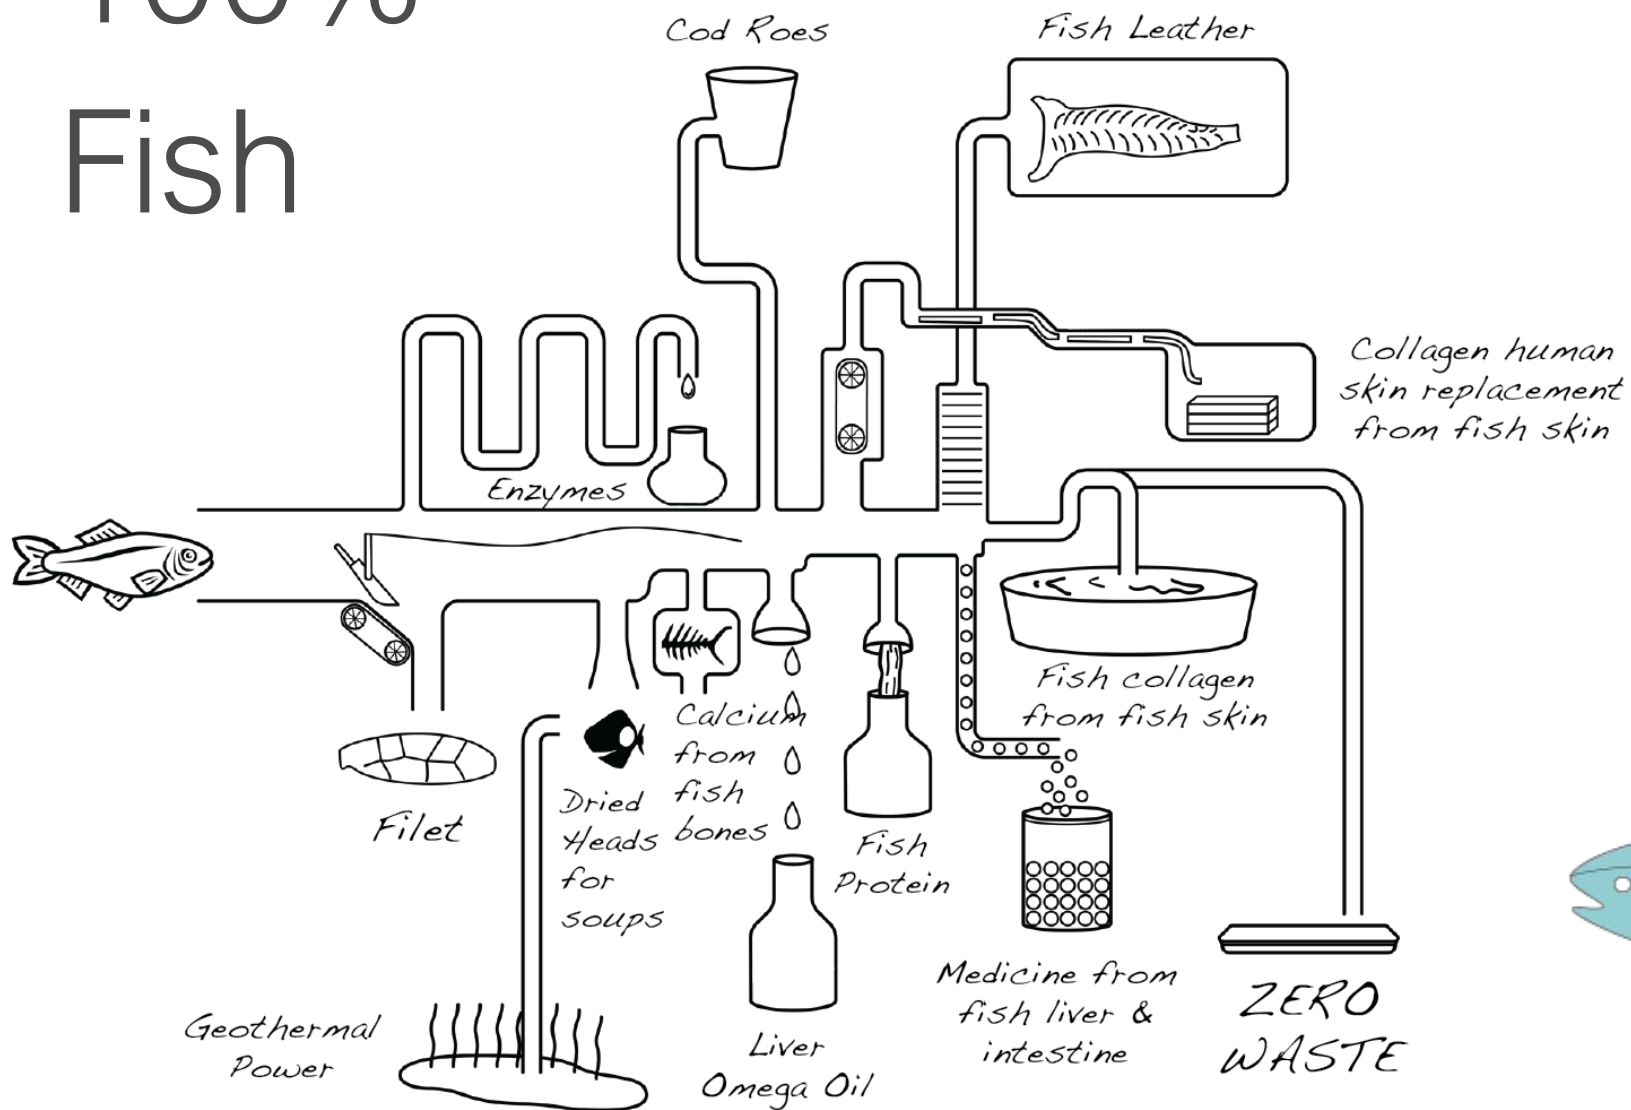 100%
Fish
Cod Roes
Fish Leather
Collagen human
skin replacement
from fish skin
Enzymes
Fish collagen
from fish skin
Calcium
from
fish
bones
Dried
Heads
for
soups
Filet
Fish
Protein
Medicine from
fish liver &
intestine
ZERO
WASTE
Geothermal
Power
Liver
Omega Oil